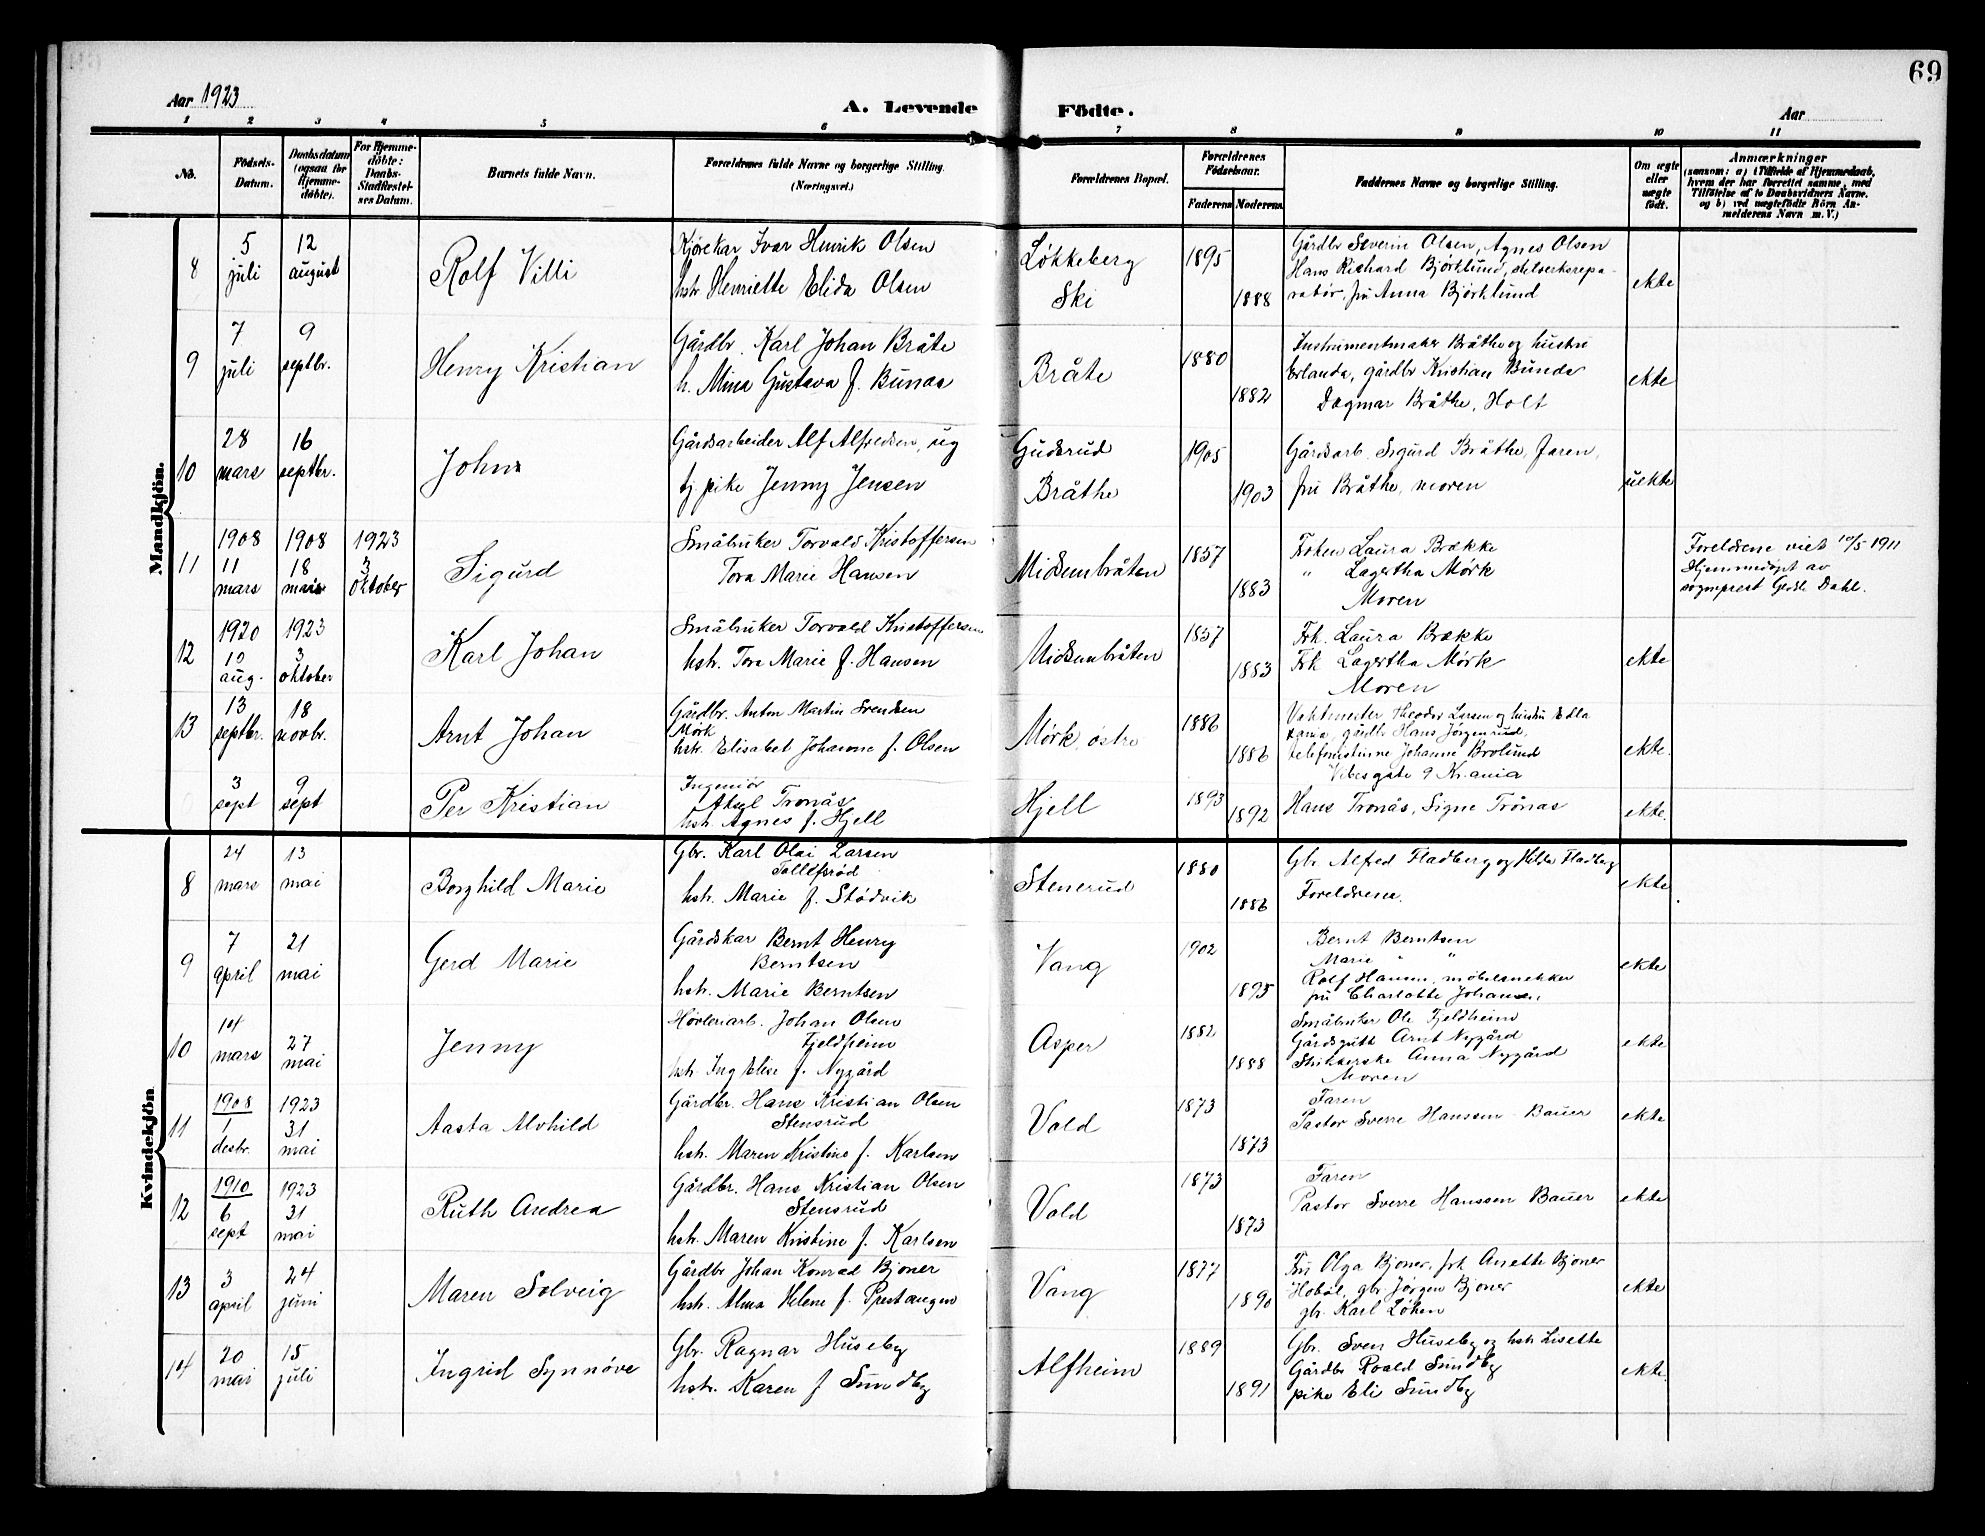 69
Aar 1923
A. Levende Födte.
Aar
1 2 3 4 5 6 7 8 9 10 11
No.
Födsels-
Datum.
Daabsdatum
(ogsaa for
Hjemme-
döbte).
For Hjemme-
döbte:
Daabs-
Stadfæstel-
ses Datum.
Barnets fulde Navn.
Forældrenes fulde Navne og borgerlige Stilling.
(Næringsvei.)
Forældrenes Bopæl.
Forældrenes
Födselsaar.
Faderens Moderens
Faddernes Navne og borgerlige Stilling.
Om ægte
eller
uægte
född.
Anmærkninger
(saasom: a) i Tilfælde af Hjemmedaab,
hvem der har forrettet samme, med
Tilföielse af to Daabsvidners Navne.
og b) ved uægtefödte Börn An-
melderens Navn m. V.)
Mandkjön.
8
5
juli
12
august
Rolf Villi
Kjørekar Ivar Henrik Olsen
hstr. Henriette Elida Olsen
Løkkeberg
Ski
1895
1888
Gårdbr Severin Olsen, Agnes Olsen
Hans Richard Bjørklund,
fru Anna Bjørklund
ekte
9
7
juli
9
septbr.
Henry Kristian
Gårdbr. Karl Johan Bråte
h. Mina Gustava f. Bunas
Bråte
1880
1882
Instrumentmaker Bråthe og hustru
Erlanda, gårdbr Kristian Bunde
Dagmar Bråthe, Holt
ekte
10
28
mars
16
septbr.
John
Gårdsarbeider Alf Alfredsen, ug
tj. pike Jenny Jensen
Gudsrud
Bråthe
1905
1903
Gårdsarb. Sigurd Bråthe, faren,
fru Bråthe, moren
uekte
11
1908
11
mars
1908
18
mars
1923
3
oktober
Sigurd
Småbruker Torvald Kristoffersen
Tora Marie Hansen
Midsembråten
1857
1883
Frøken Laura Brække
" Lagertha Mørk
Moren
Foreldrene viet 10/5 1911
Hjemmedøpt av
sogneprest Gedle Dahl.
12
1920
10
aug.
1923
3
oktober
Karl Johan
Småbruker Torvald Kristoffersen
hstr. Tora Marie f. Hansen
Midsembråten
1857
1883
Frk. Laura Brække
Frk Lagertha Mørk
Moren
ekte
13
13
septbr.
18
novbr.
Arnt Johan
Gårdbr. Anton Martin Svendsen
Mørk
hstr. Elisabet Johanne f. Olsen
Mørk østre
1886
1886
Vaktmester Theodor Larsen og hustru Edla
gårdbr Hans Jørgensrud,
telefonistinne Johanne Brolund
Vibesgate 9 Kr.ania
ekte.
3
sept
9
sept
Per Kristian
Ingeniør
Aksel Tronås
hstr. Agnes f. Hjell
Hjell
1893
1892
Hans Tronås, Signe Tronås
ekte.
Kvindekjön
8
24
mars
13
mai
Borghild Marie
Gbr. Karl Olai Larsen
Tollefsrød
hstr. Marie f. Stødvik
Stenerud
1880
1886
Gbr Alfred Fladberg og Hilda Fladberg
Foreldrene.
ekte
9
7
april
21
mai
Gerd Marie
Gårdskar Bernt Henry
Berntsen
hstr. Marie Berntsen
Vang
1902
1895
Bernt Berntsen
Marie " "
Rolf Hansen, møbelsnekker
fru Charlotte Johansen,
ekte
10
14
mars
27
mai
Jenny
Høvleriarb. Johan Olsen
Fjeldheim
hstr Ing Elise f. Nygård
Asper
1882
1888
Småbruker Ole Fjeldheim
Gårdsgutt Arnt Nygård
Strikkerske Anna Nygård
Moren
ekte
11
1908
1
desbr.
1923
31
mai
Aasta Alvhild
Gårdbr. Hans Kristian Olsen
Stensrud
hstr. Maren Kristine f. Karlsen
Vald
1873
1873
Faren
Pastor Sverre Hanssen Bauer
ekte
12
1910
6
sept
1923
31
mai
Ruth Andrea
Gårdbr. Hans Kristian Olsen
Stensrud
hstr. Maren Kristine f. Karlsen
Vald
1873
1873
Faren
Pastor Sverre Hanssen Bauer
ekte
13
3
april
24
juni
Maren Solveig
Gårdbr Johan Konrad Bjoner
hstr. Alma Helene f. Prestangen
Vang
1877
1890
Fru Olga Bjoner, frk Anette Bjoner
Hobøl, gbr Jørgen Bjoner
gbr. Karl Løken
ekte
14
20
mai
15
juli
Ingrid Synnøve
Gbr. Ragnar Huseby
hstr. Karen f Sundby
Alfheim
1889
1891
Gbr. Sven Huseby og hstr Lisette
Gårdbr Roald Sundby
pike Eli Sundby
ekte.